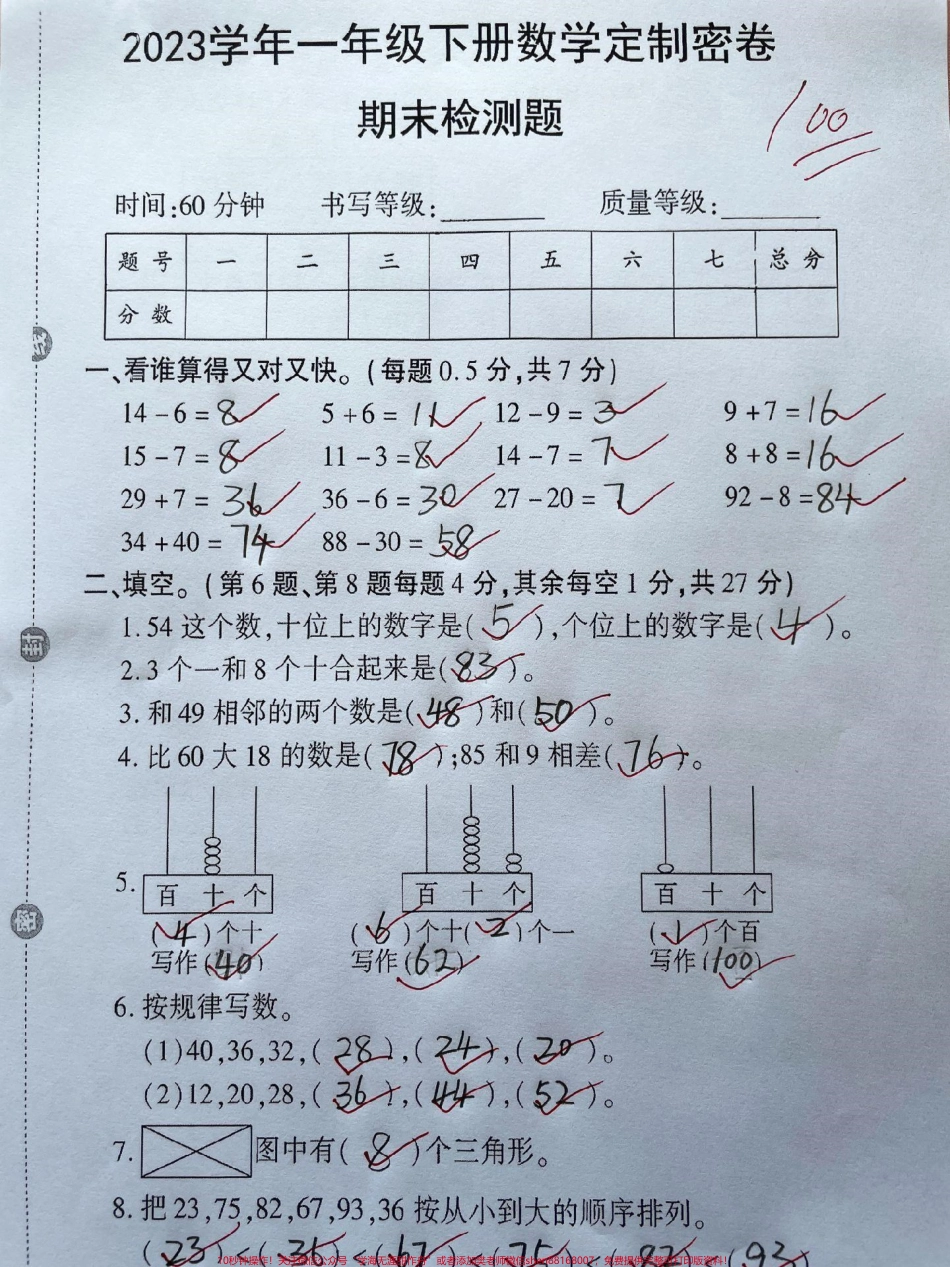 2023学年一年级下册数学定制密卷
期末检测题
100
时间:60 分钟 书写等级: 质量等级:
题 号 一 二 三 四 五 六 七 总 分
分 数
一、看谁算得又对又快。(每题 0.5 分,共 7 分)
14-6=8 5+6=11 12-9=3 9+7=16
15-7=8 11-3=8 14-7=7 8+8=16
29+7=36 36-6=30 27-20=7 92-8=84
34+40=74 88-30=58
二、填空。(第 6 题、第 8 题每题 4 分,其余每空 1 分,共 27 分)
1.54 这个数,十位上的数字是(5),个位上的数字是(4)。
2.3 个一和 8 个十合起来是(83)。
3.和 49 相邻的两个数是(48)和(50)。
4.比 60 大 18 的数是(78);85 和 9 相差(76)。
5. 百 十 个 百 十 个 百 十 个
(4)个十 (6)个十(2)个一 (1)个百
写作(40) 写作(62) 写作(100)
6.按规律写数。
(1)40,36,32,(28),(24),(20)。
(2)12,20,28,(36),(44),(52)。
7. 图中有(8)个三角形。
8.把 23,75,82,67,93,36 按从小到大的顺序排列。
(23 < 36 < 67 < 75 < 82 < 93
封
密